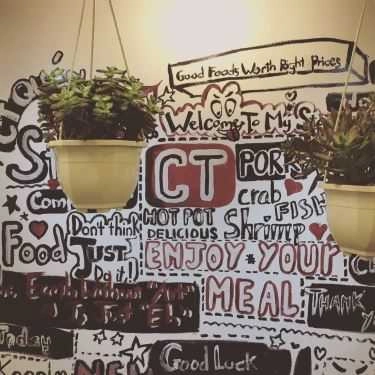 Good Foods Worth Right Prices
Welcome To My
CT
PORK
crab
FISH
HOT POT
DELICIOUS
Shrimp
Food
Don't think
JUST
Do it!
ENJOY YOUR
MEAL
Earth without "Art"
is Just Eh.
THANK
Today
Good Luck